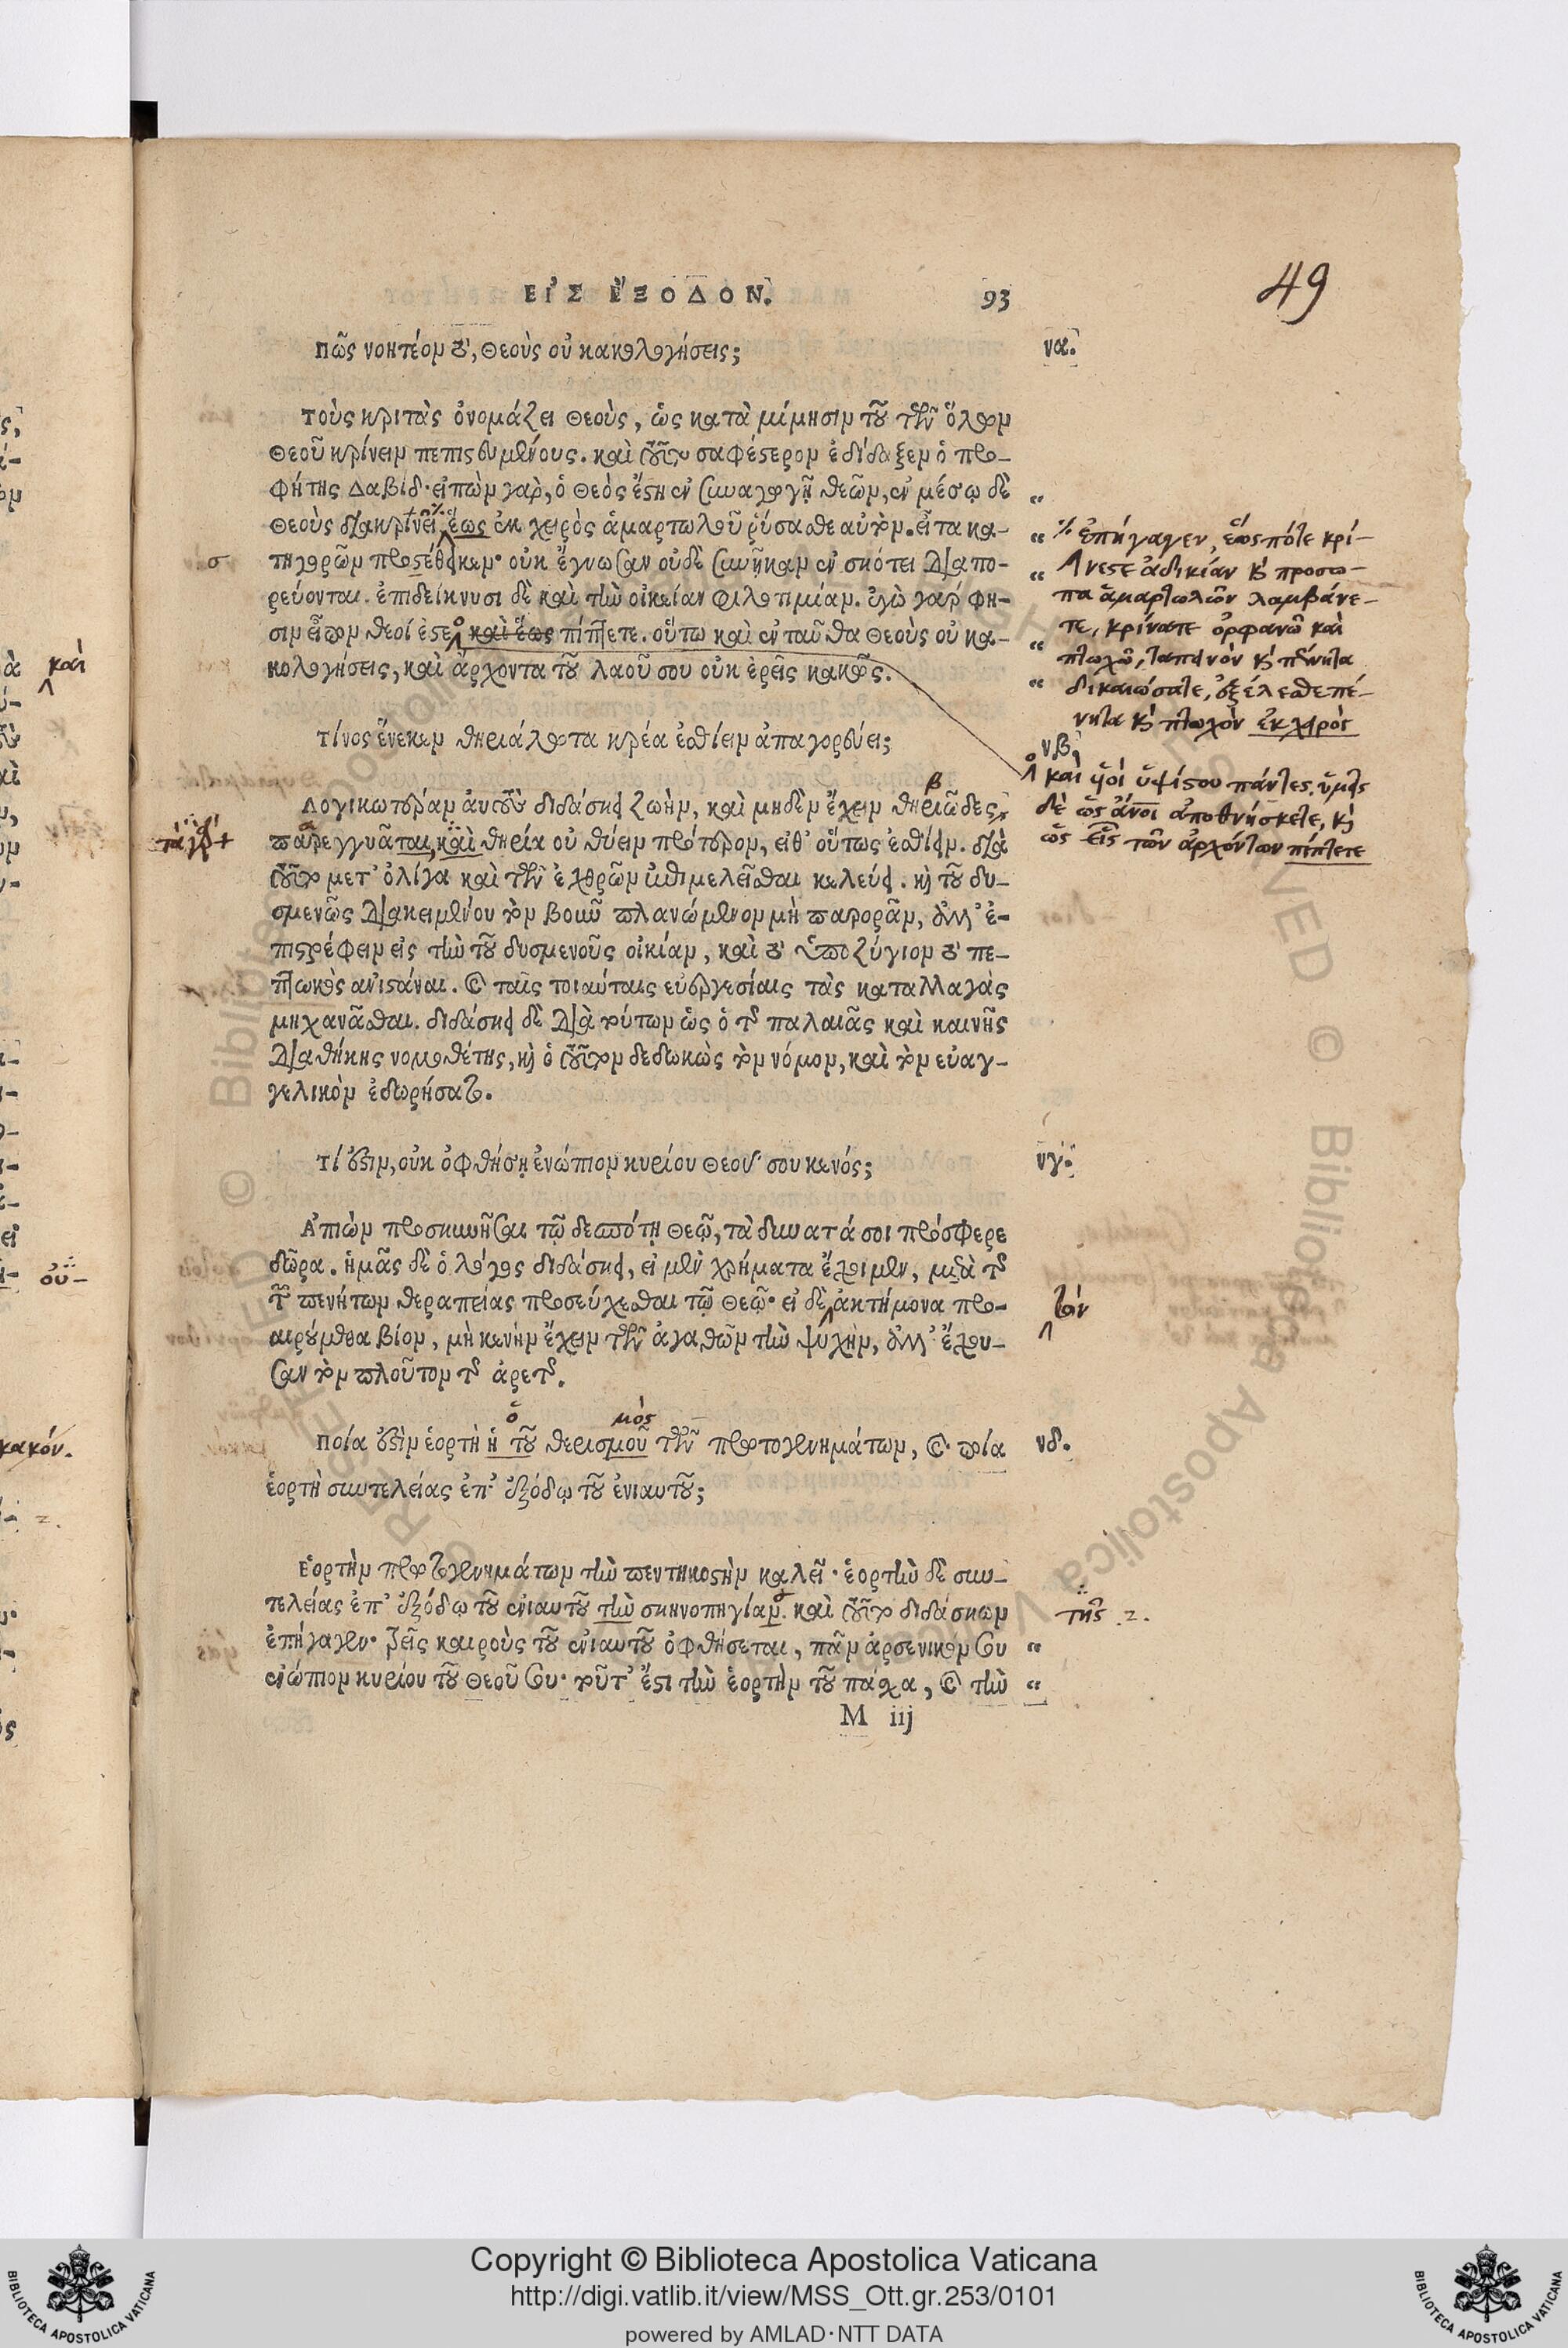 ΕΙ᾽Σ Ε῎ΞΟΔΟΝ. 93
49
Πῶς νοητέον τὸ, Θεοὺς οὐ κακολογήσεις; να.
Τοὺς κριτὰς ὀνομάζει Θεοὺς, ὡς κατὰ μίμησιν τοῦ τῶν ὅλων
Θεοῦ κρίνειν πεπιστευμένους. καὶ τοῦτο σαφέστερον ἐδίδαξεν ὁ προ-
φήτης Δαβίδ· εἰπὼν γὰρ, ὁ Θεὸς ἔστη ἐν συναγωγῇ θεῶν, ἐν μέσῳ δὲ “
Θεοὺς διακρίνει, ἕως ἐκ χειρὸς ἁμαρτωλοῦ ῥύσασθε αὐτόν. εἶτα κα- “
τηγορῶν προστέθεικεν· οὐκ ἔγνωσαν οὐδὲ συνῆκαν ἐν σκότει διαπο- “
ρεύονται. ἐπιδείκνυσι δὲ καὶ τὴν οἰκείαν φιλοτιμίαν. ἐγὼ γάρ φη-
σιν εἶπον θεοί ἐστε, καὶ ἕως πίπτετε. οὕτω καὶ ἐνταῦθα Θεοὺς οὐ κα- “
κολογήσεις, καὶ ἄρχοντα τοῦ λαοῦ σου οὐκ ἐρεῖς κακῶς. “
ἐπήγαγεν, ἕως πότε κρί-
νετε ἀδικίαν καὶ προσω-
πα ἁμαρτωλῶν λαμβάνε-
τε, κρίνατε ὀρφανῶ καὶ
πτωχῶ, ταπεινὸν καὶ πένητα
δικαιώσατε, ἐξέλεσθε πέ-
νητα καὶ πτωχὸν ἐκ χειρὸς
Τίνος ἕνεκεν θηριάλωτα κρέα ἐσθίειν ἀπαγορεύει; νβ.
καὶ υἱοὶ ὑψίστου πάντες. ὑμεῖς
δὲ ὡς ἄνοι ἀποθνήσκετε, καὶ
ὡς εἷς τῶν ἀρχόντων πίπτετε
Λογικωτέραν αὐτοὺς διδάσκει ζωὴν, καὶ μηδὲν ἔχειν θηριῶδες,
παρεγγυᾶται, καὶ θηρία οὐ θύειν πρότερον, εἶθ᾽ οὕτως ἐσθίειν. διὰ
τοῦτο μετ᾽ ὀλίγα καὶ τῶν ἐχθρῶν ἐπιμελεῖσθαι κελεύει. καὶ τοῦ δυ-
σμενῶς διακειμένου τὸν βοῦν πλανώμενον μὴ παρορᾶν, ἀλλ᾽ ἐ-
πιστρέφειν εἰς τὴν τοῦ δυσμενοῦς οἰκίαν, καὶ τὸ ὑποζύγιον τὸ πε-
πτωκὸς ἀνιστάναι. καὶ ταῖς τοιαύταις εὐεργεσίαις τὰς καταλλαγὰς
μηχανᾶσθαι. διδάσκει δὲ διὰ τούτων ὡς ὁ τῆς παλαιᾶς καὶ καινῆς
διαθήκης νομοθέτης, καὶ ὁ τοῦτον δεδωκὼς τὸν νόμον, καὶ τὸν εὐαγ-
γελικὸν ἐδωρήσατο.
Τί ἐστιν, οὐκ ὀφθήσῃ ἐνώπιον κυρίου Θεοῦ σου κενός; νγ.
Ἀπιὼν προσκυνῆσαι τῷ δεσπότῃ Θεῷ, τὰ δυνατά σοι πρόσφερε
δῶρα. ἡμᾶς δὲ ὁ λόγος διδάσκει, εἰ μὲν χρήματα ἔχοιμεν, μετὰ τῆς
τῶν πενήτων θεραπείας προσεύχεσθαι τῷ Θεῷ· εἰ δὲ ἀκτήμονα προ- τὸν
αιρούμεθα βίον, μὴ κενὴν ἔχειν τῶν ἀγαθῶν τὴν ψυχὴν, ἀλλ᾽ ἔχου-
σαν τὸν πλοῦτον τῆς ἀρετῆς.
ὁ μὸς
Ποία ἐστὶν ἑορτὴ ἡ τοῦ θερισμοῦ τῶν πρωτογεννημάτων, καὶ ποία νδ.
ἑορτὴ συντελείας ἐπ᾽ ἐξόδῳ τοῦ ἐνιαυτοῦ;
Ἑορτὴν πρωτογεννημάτων τὴν πεντηκοστὴν καλεῖ· ἑορτὴν δὲ συν-
τελείας ἐπ᾽ ἐξόδῳ τοῦ ἐνιαυτοῦ τὴν σκηνοπηγίαν. καὶ τοῦτο διδάσκων τῆς
ἐπήγαγεν· τρεῖς καιροὺς τοῦ ἐνιαυτοῦ ὀφθήσεται, πᾶν ἀρσενικόν σου “
ἐνώπιον κυρίου τοῦ Θεοῦ σου· τοῦτ᾽ ἔστι τὴν ἑορτὴν τοῦ πάσχα, καὶ τὴν “
M iij
καὶ
οὐ-
κακόν.
Copyright © Biblioteca Apostolica Vaticana
http://digi.vatlib.it/view/MSS_Ott.gr.253/0101
powered by AMLAD·NTT DATA
BIBLIOTECA APOSTOLICA VATICANA
BIBLIOTECA APOSTOLICA VATICANA